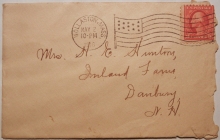 MAY 2
Mrs. H. E. Huntoon,
Inland Farm,
Danbury
N. H.